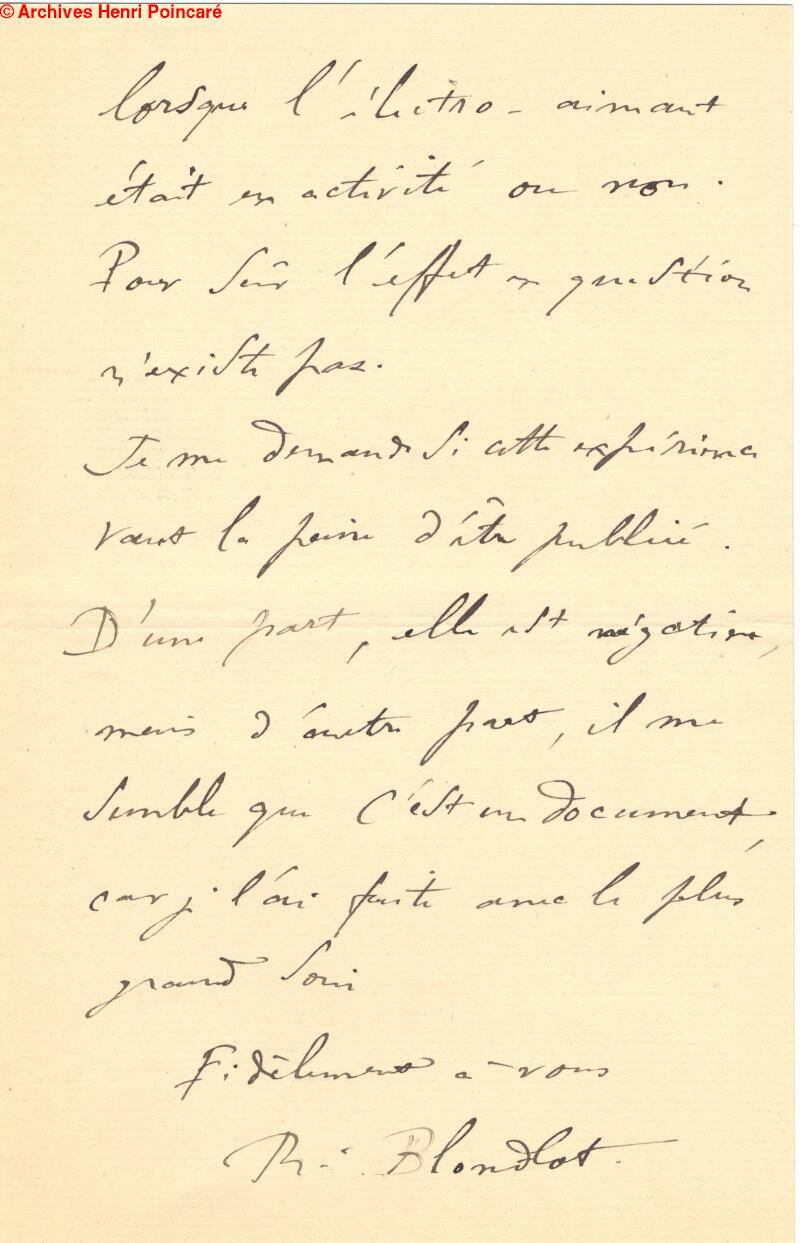 © Archives Henri Poincaré
lorsque l'électro-aimant
était en activité ou non.
Pour sûr l'effet en question
n'existe pas.
Je me demande si cette expérience
vaut la peine d'être publiée.
D'une part, elle est négative,
mais d'autre part, il me
semble que c'est un document,
car je l'ai faite avec le plus
grand soin
Fidèlement à vous
R. Blondlot.